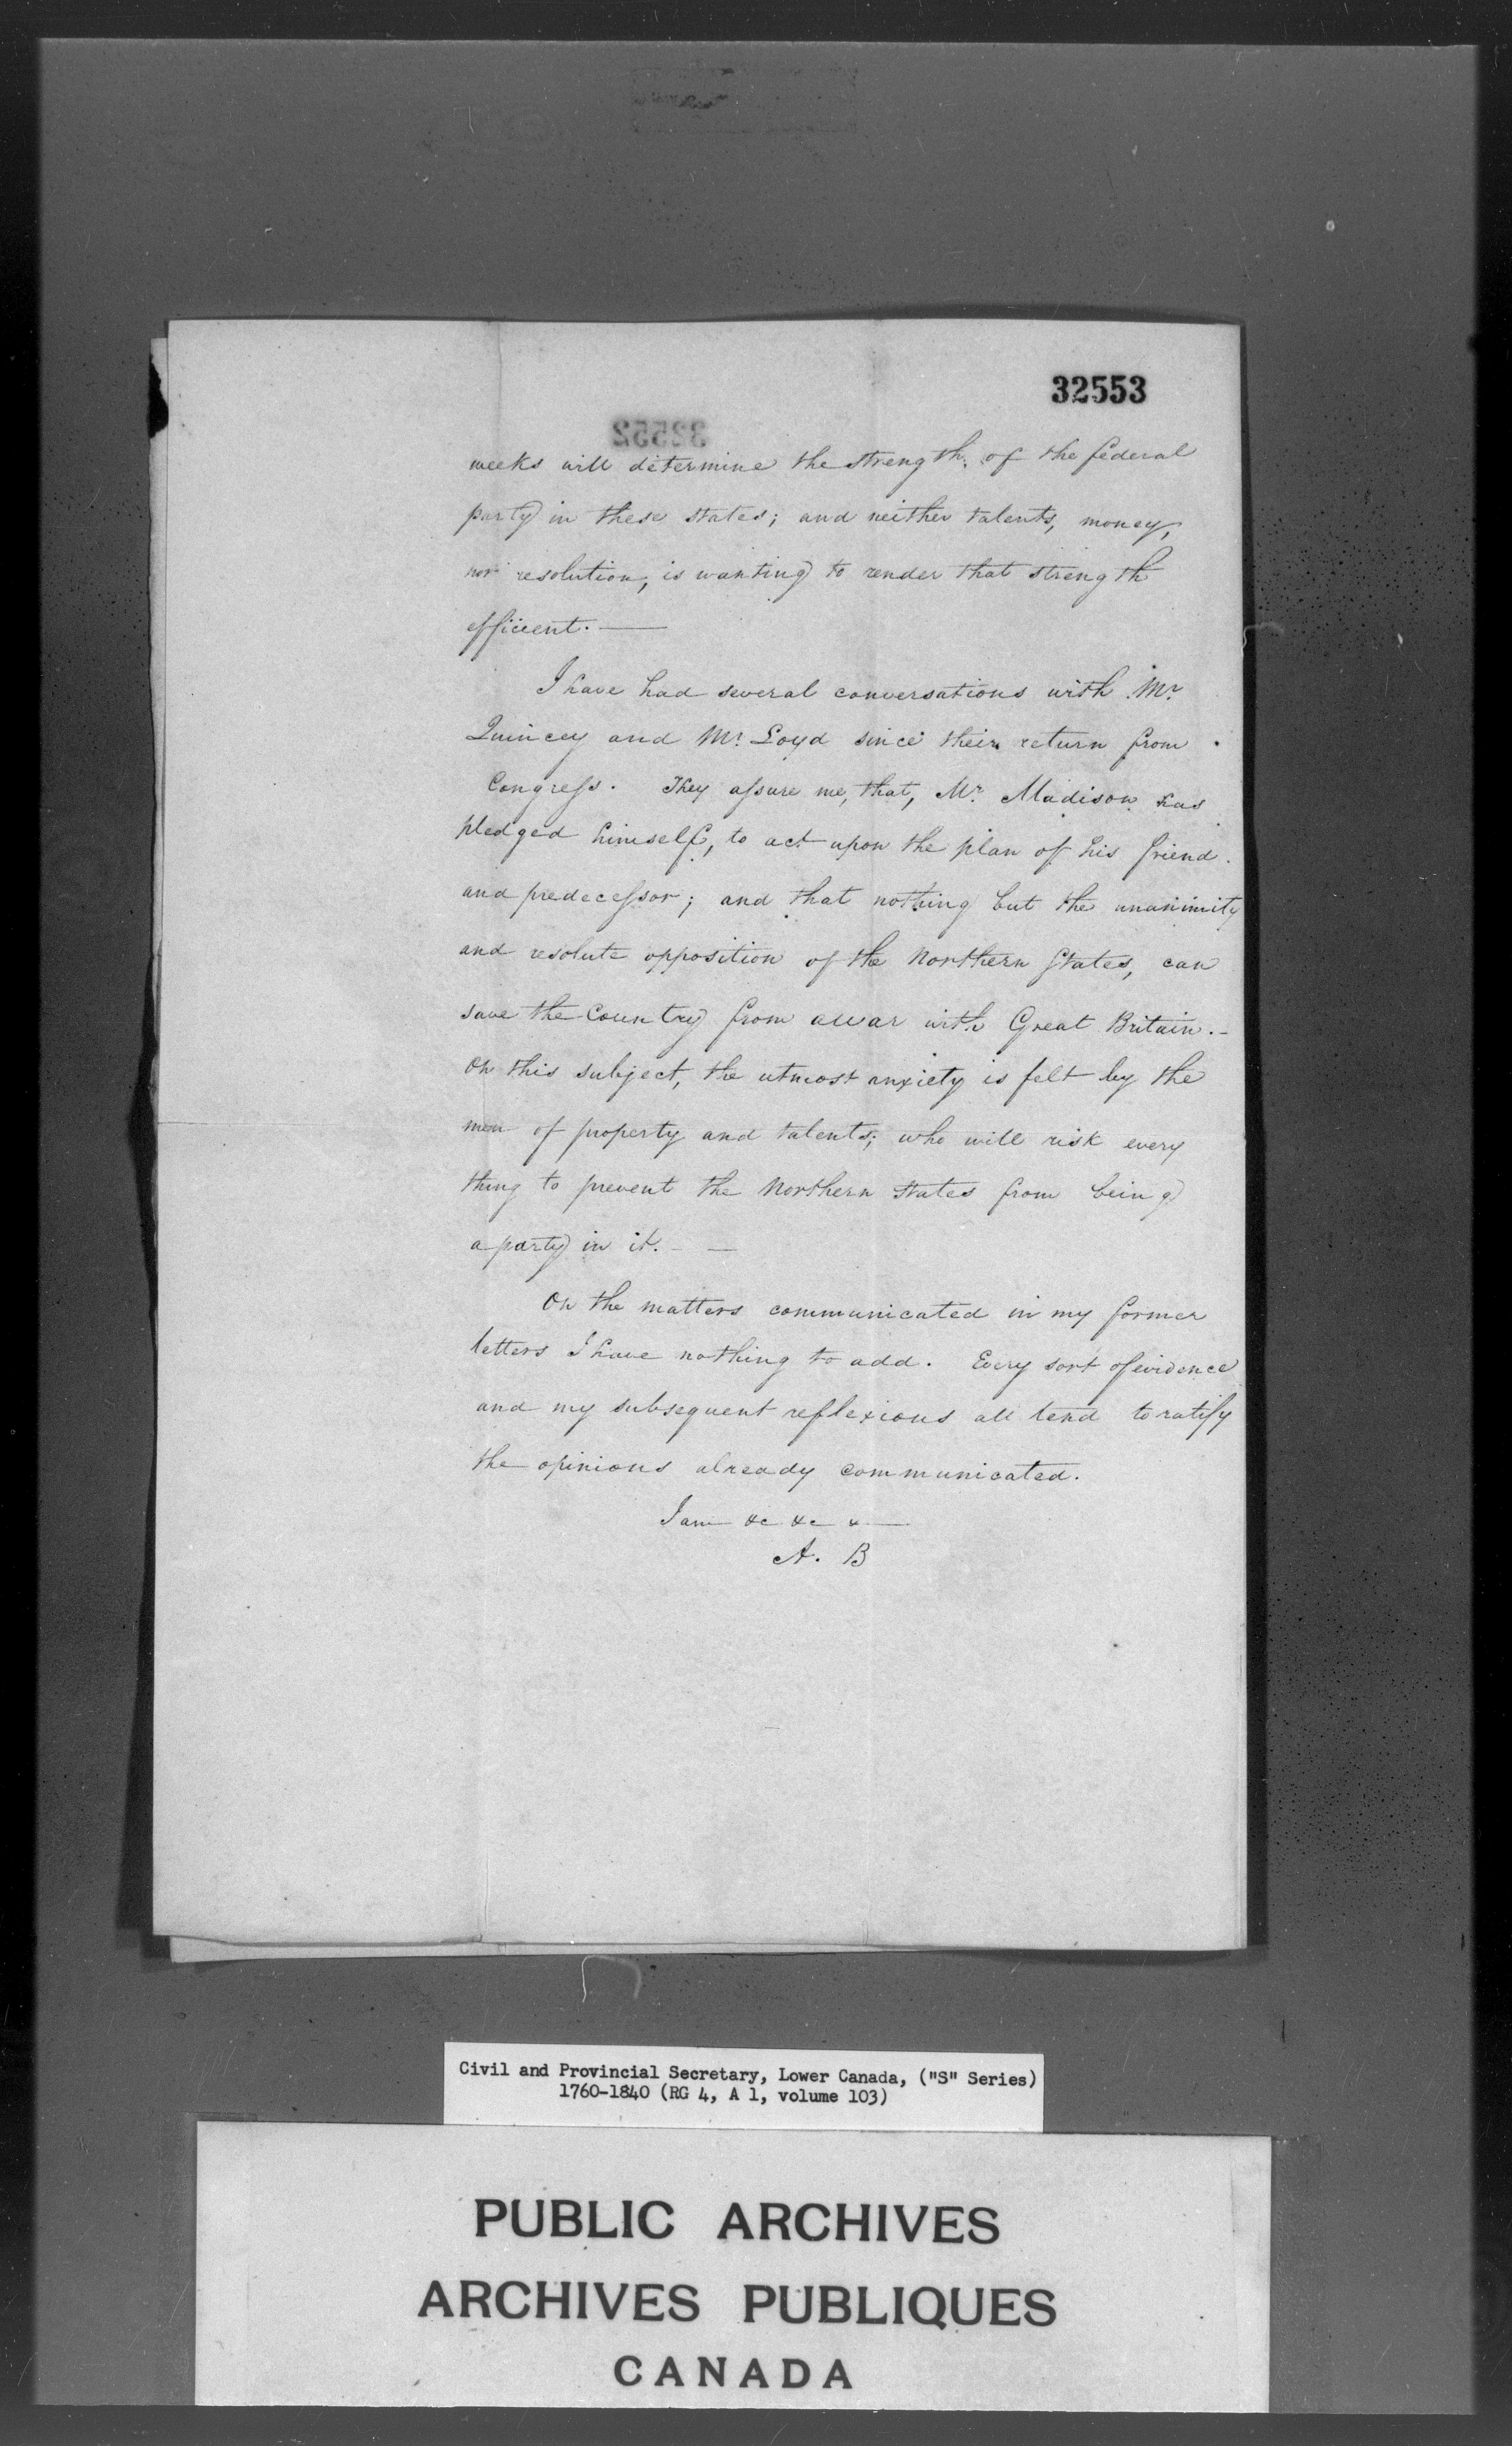 32553
32552
weeks will determine the strength of the federal
party in these states; and neither talents, money,
nor resolution, is wanting to render that strength
efficient. —
I have had several conversations with Mr.
Quincey and Mr. Loyd since their return from
Congress. They assure me, that, Mr. Madison has
pledged himself, to act upon the plan of his friend
and predecessor; and that nothing but the unanimity
and resolute opposition of the Northern States, can
save the Country from a war with Great Britain. -
On this subject, the utmost anxiety is felt by the
men of property and talents; who will risk every
thing to prevent the Northern States from being
a party in it. - —
On the matters communicated in my former
letters I have nothing to add. Every sort of evidence
and my subsequent reflexions all tend to ratify
the opinions already communicated.
I am &c &c & —
A. B
Civil and Provincial Secretary, Lower Canada, ("S" Series)
1760-1840 (RG 4, A 1, volume 103)
PUBLIC ARCHIVES
ARCHIVES PUBLIQUES
CANADA